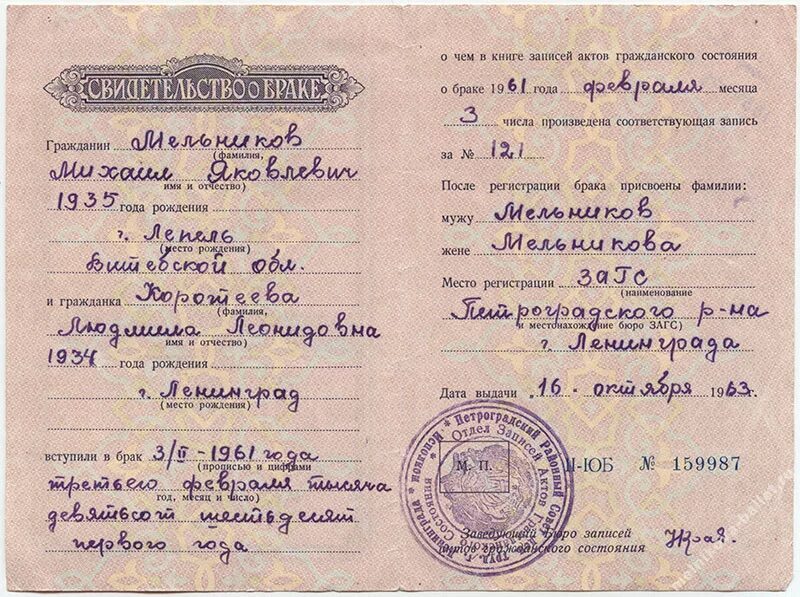 СВИДЕТЕЛЬСТВО О БРАКЕ
Гражданин Мельников
(фамилия,
Михаил Яковлевич
имя и отчество)
1935 года рождения
г. Лепель
(место рождения)
Витебской обл.
и гражданка Коротеева
(фамилия,
Людмила Леонидовна
имя и отчество)
1934 года рождения
г. Ленинград
(место рождения)
вступили в брак 3/II-1961 года
(прописью и цифрами
третьего февраля тысяча
год, месяц и число)
девятьсот шестьдесят
первого года
о чем в книге записей актов гражданского состояния
о браке 1961 года февраля месяца
3 числа произведена соответствующая запись
за № 121
После регистрации брака присвоены фамилии:
мужу Мельников
жене Мельникова
Место регистрации ЗАГС
(наименование
Петроградского р-на
и местонахождение бюро ЗАГС)
г. Ленинграда
Дата выдачи „16" октября 1963 г.
М. П.
II-ЮБ № 159987
Петроградский Районный Совет
Отдел Записей Актов
Заведующий Бюро записей
актов гражданского состояния